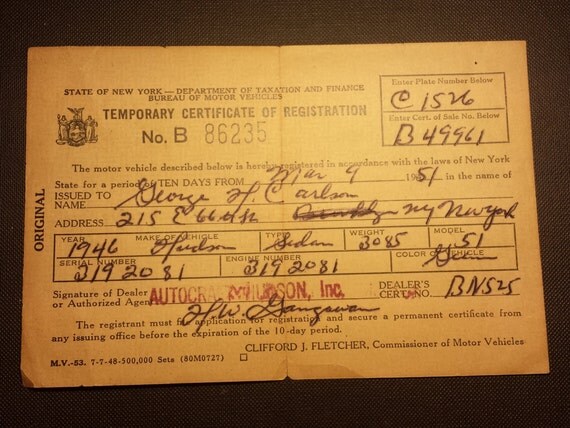 STATE OF NEW YORK — DEPARTMENT OF TAXATION AND FINANCE
BUREAU OF MOTOR VEHICLES
TEMPORARY CERTIFICATE OF REGISTRATION
No. B 86235
Enter Plate Number Below
C 1526
Enter Cert. of Sale No. Below
B 49961
The motor vehicle described below is hereby registered in accordance with the laws of New York
State for a period of TEN DAYS FROM Mar 9 1951 in the name of
ISSUED TO
NAME George H. Carlson
ADDRESS 215 E 66th St Brooklyn NY New York
YEAR MAKE OF VEHICLE TYPE WEIGHT MODEL
1946 Hudson Sedan 3085 51
SERIAL NUMBER ENGINE NUMBER COLOR OF VEHICLE
3192081 3192081 Green
Signature of Dealer AUTOCRAT HUDSON, Inc. DEALER'S
or Authorized Agent H.W. CERT. NO. BN525
The registrant must file application for registration and secure a permanent certificate from
any issuing office before the expiration of the 10-day period.
CLIFFORD J. FLETCHER, Commissioner of Motor Vehicles
M.V.-53. 7-7-48-500,000 Sets (80M0727)
ORIGINAL